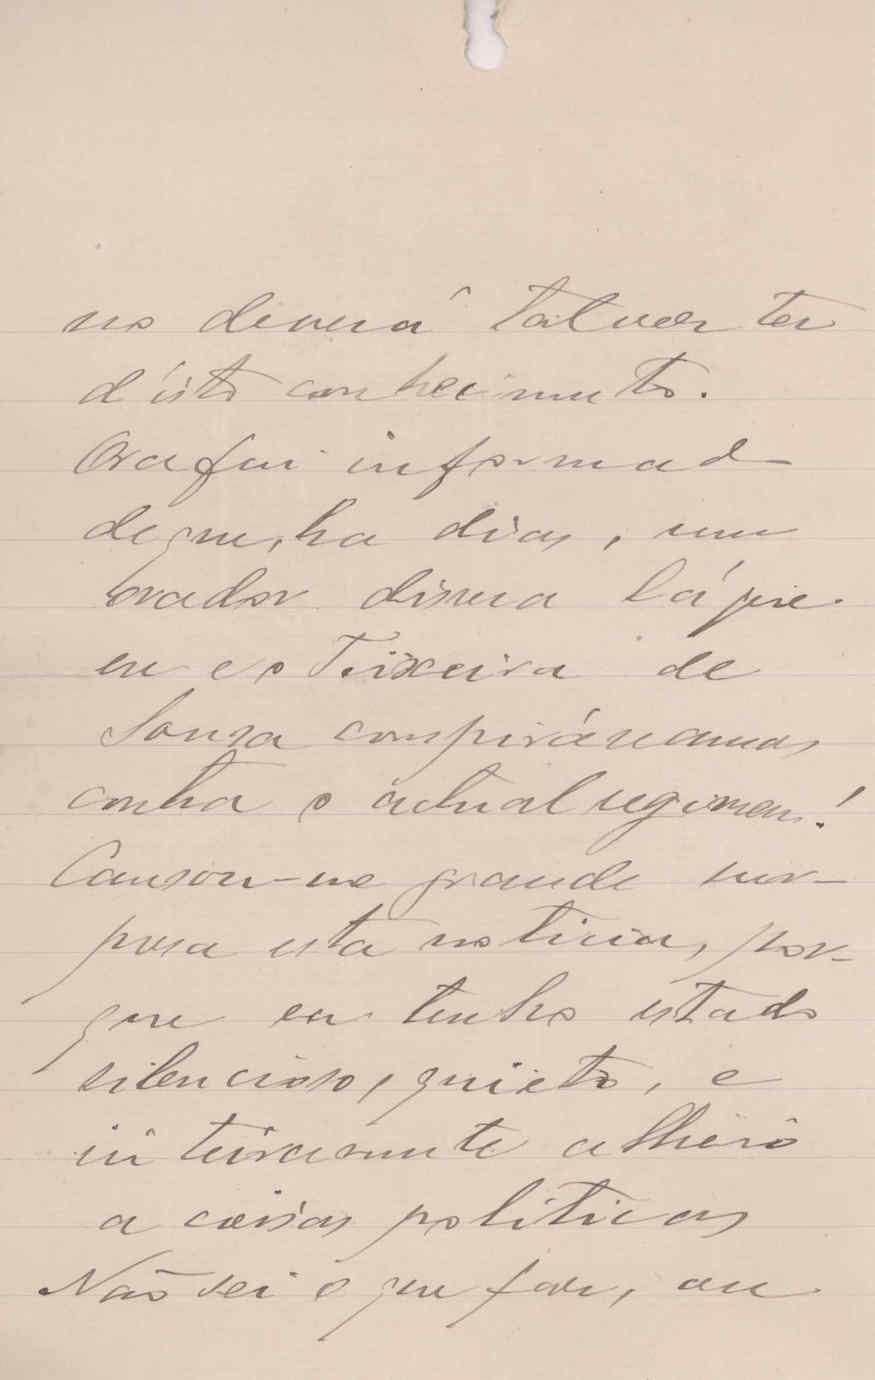 no deverá talvez ter
d'isto conhecimento.
Ora fui informado
de que, ha dias, um
orador dissera lá que
eu e o Teixeira de
Sousa conspiráveamos
contra o actual regimen!
Causou-me grande sur-
presa esta noticia, por-
que eu tenho estado
silencioso, quieto, e
inteiramente alheio
a coisas politicas
Não sei o que faz, ou